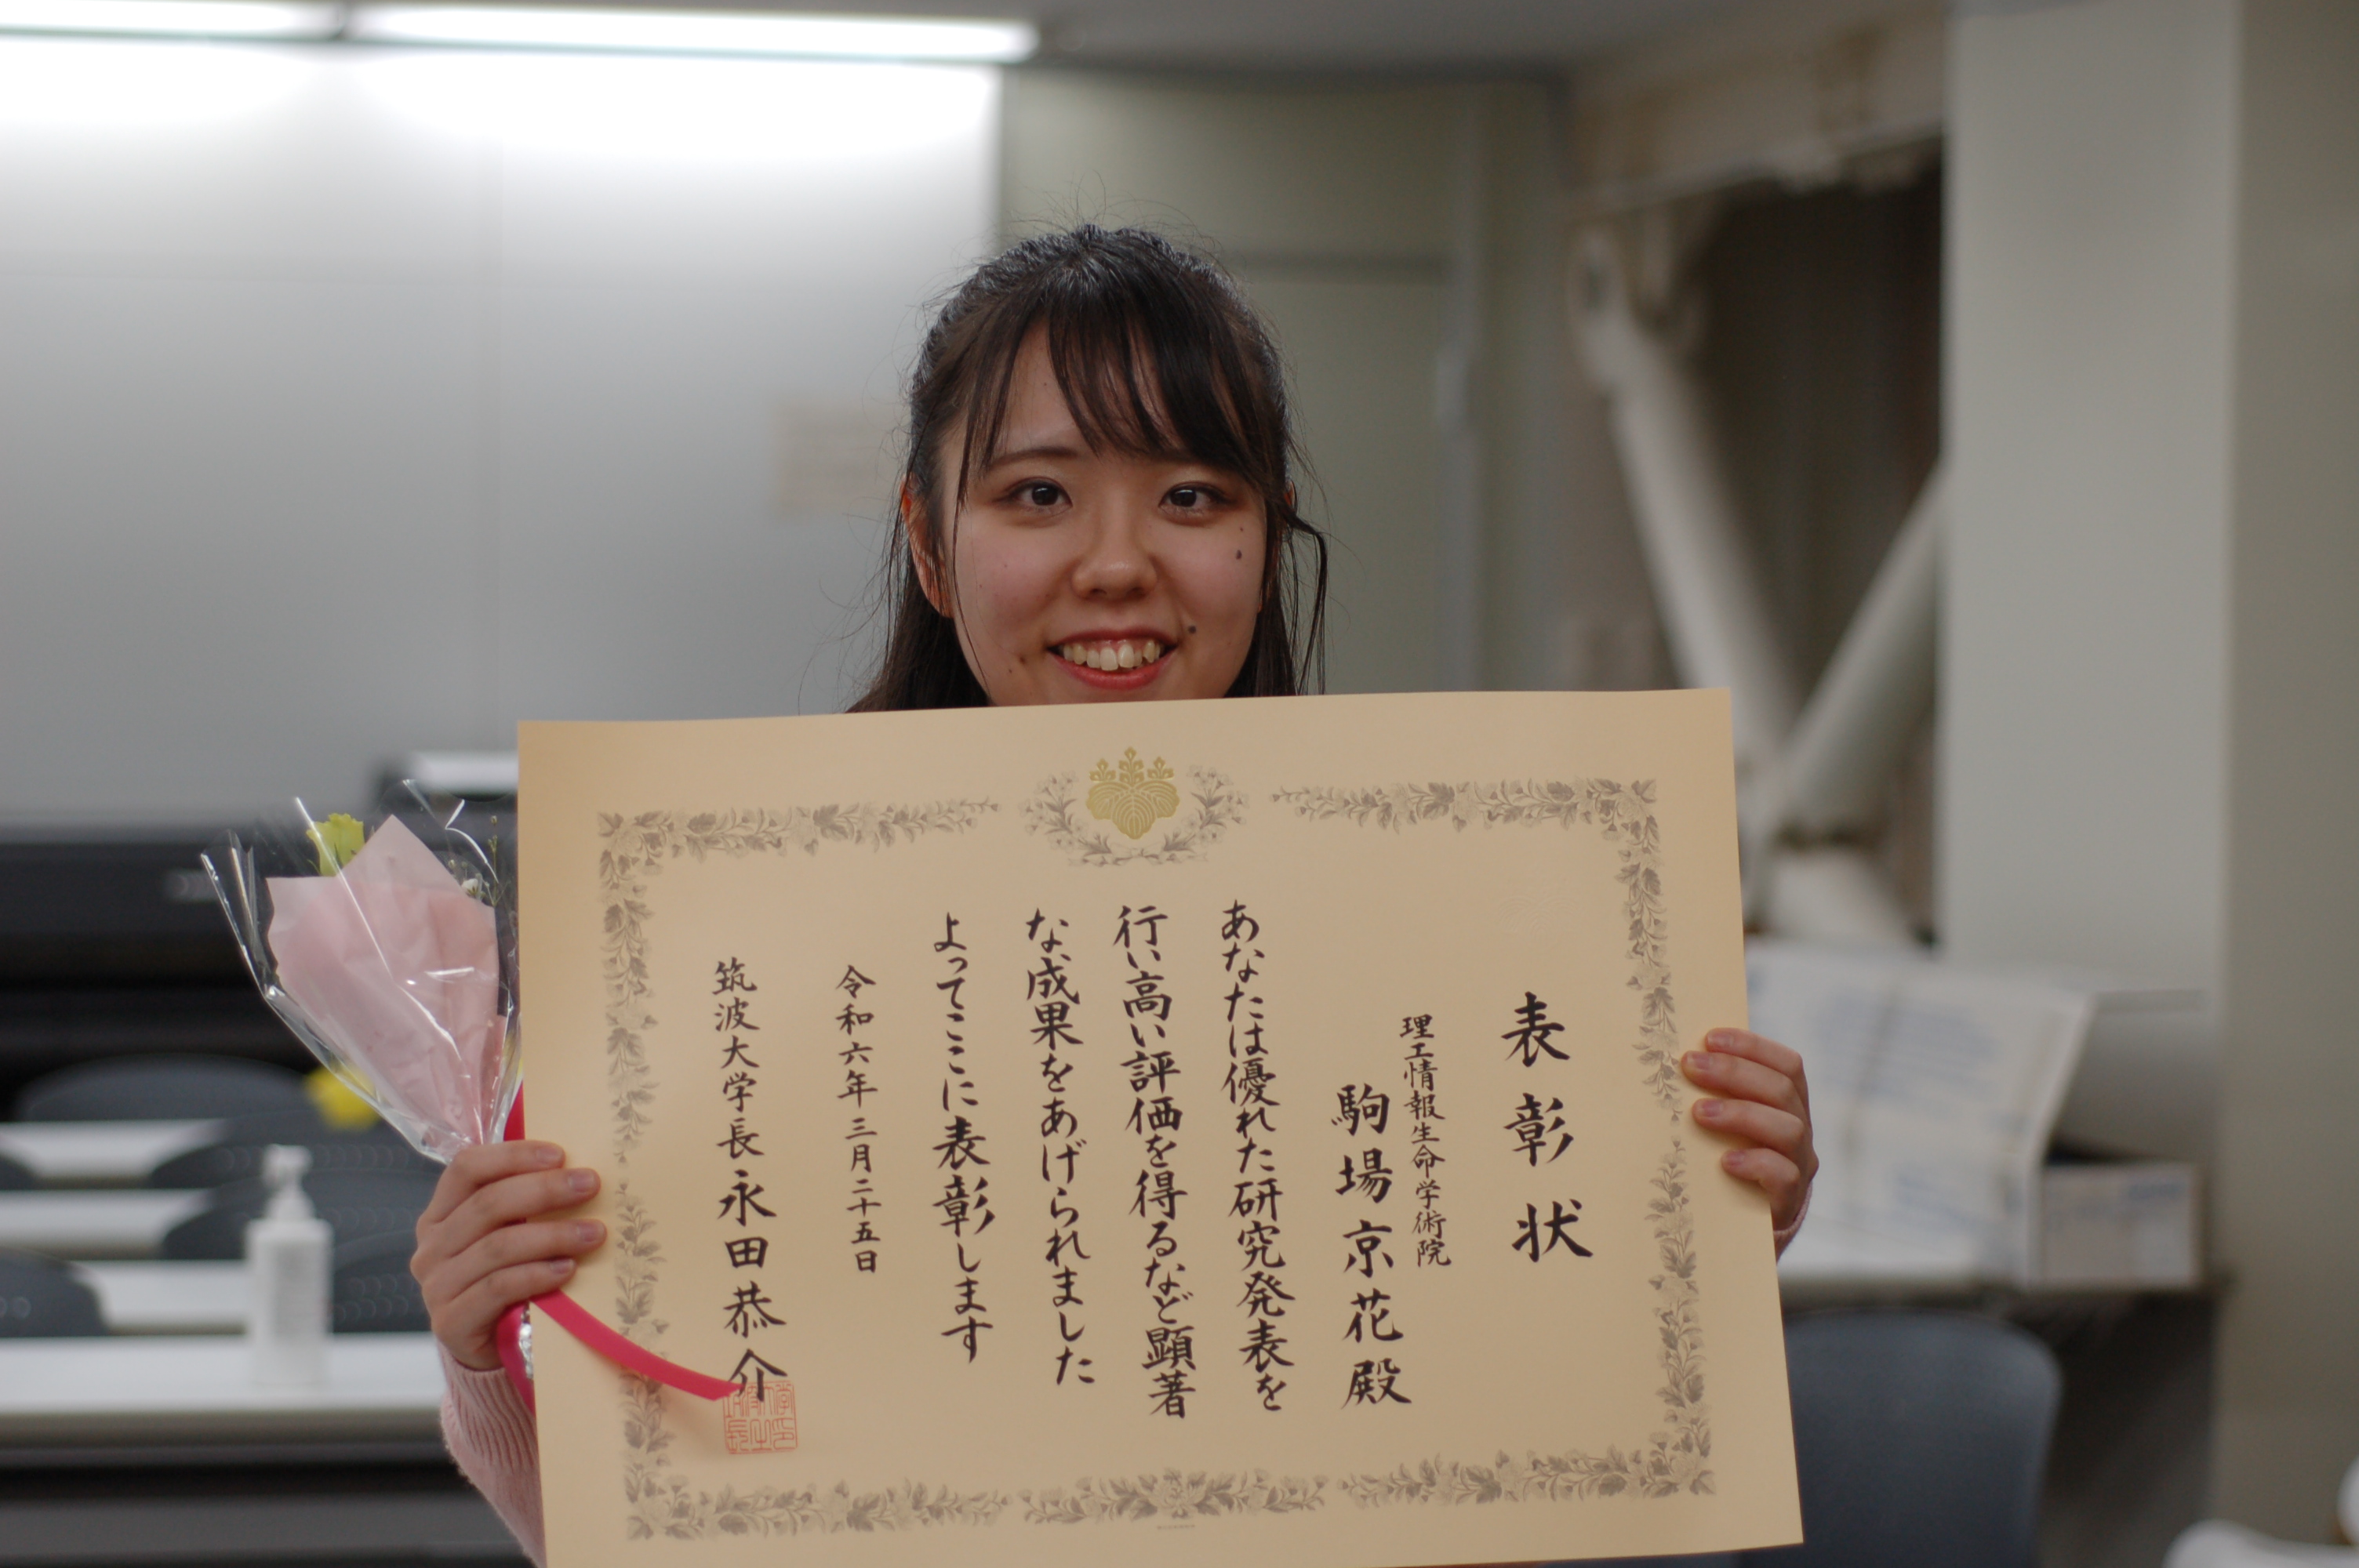 表彰状
理工情報生命学術院
駒場京花殿
あなたは優れた研究発表を
行い高い評価を得るなど顕著
な成果をあげられました
よってここに表彰します
令和六年三月二十五日
筑波大学長永田恭介